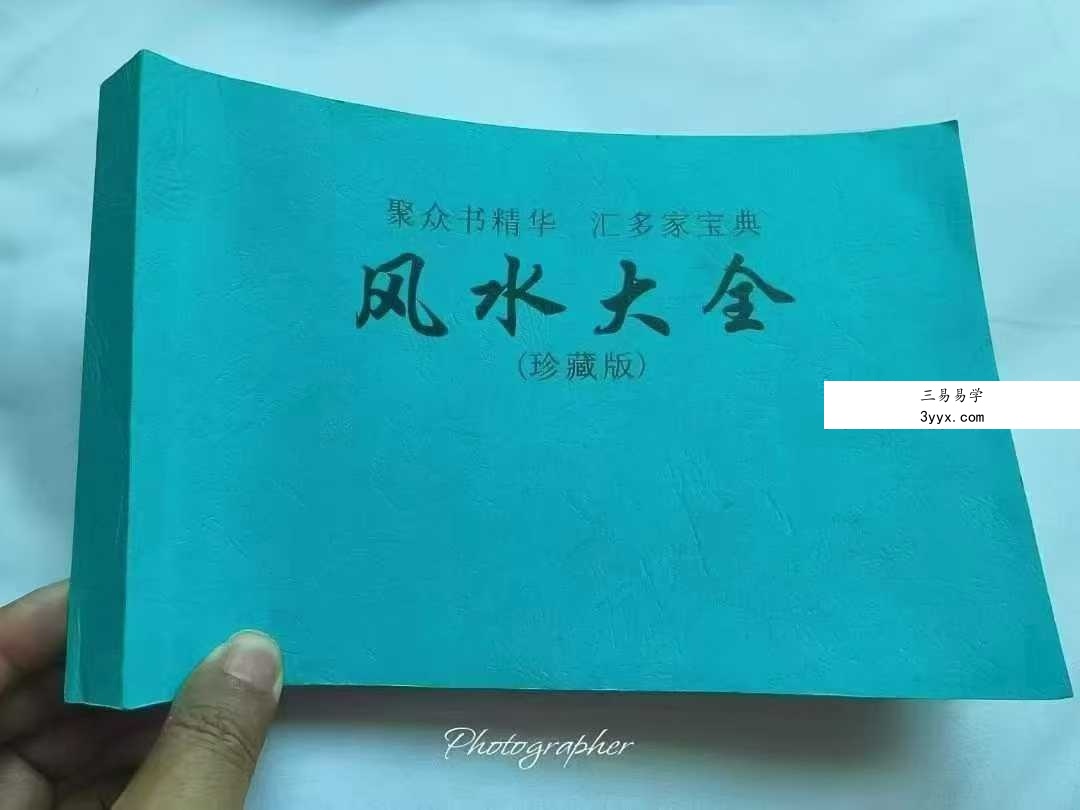 聚众书精华 汇多家宝典
风水大全
(珍藏版)
三易易学
3yyx.com
Photographer